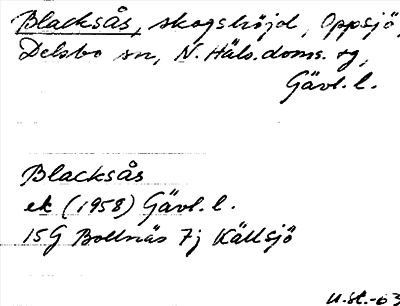 Blacksås, skogshöjd, Oppsjö,
Delsbo sn, N. Häls. doms. sg,
Gävl. l.
Blacksås
ek (1958) Gävl. l.
15G Bollnäs 7j Källsjö
U.St.-63